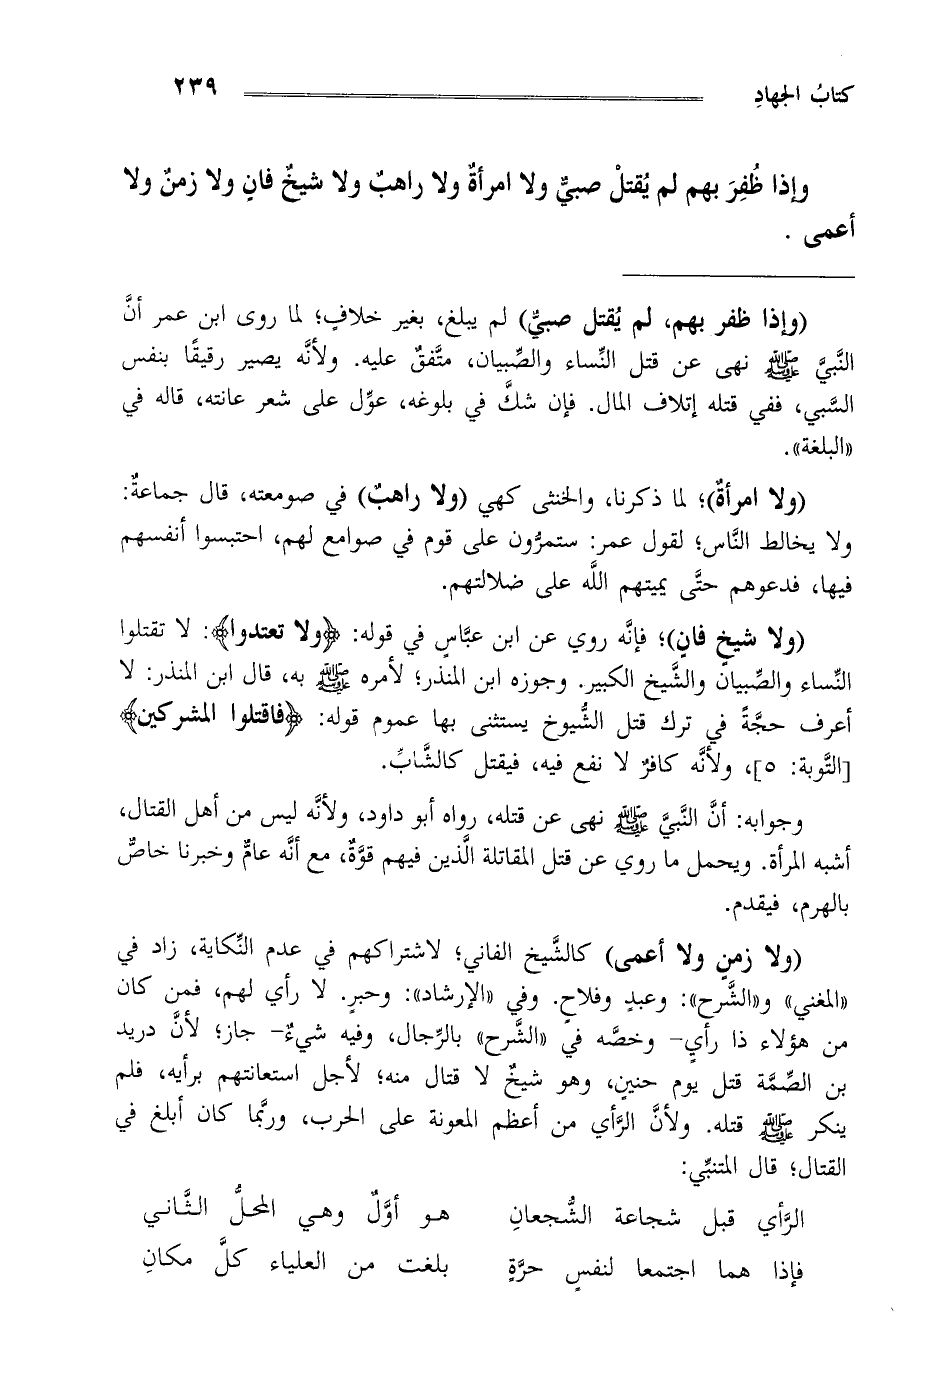 كتابُ الجهادِ ٢٣٩
وإذا ظُفِرَ بهم لم يُقتلْ صبيٌّ ولا امرأةٌ ولا راهبٌ ولا شيخٌ فانٍ ولا زمنٌ ولا
أعمى .
(وإذا ظفر بهم، لم يُقتل صبيٌّ) لم يبلغ، بغير خلافٍ؛ لما روى ابن عمر أنَّ
النَّبيَّ ﷺ نهى عن قتل النِّساء والصِّبيان، متَّفقٌ عليه. ولأنَّه يصير رقيقًا بنفس
السَّبي، ففي قتله إتلاف المال. فإن شكَّ في بلوغه، عوِّل على شعر عانته، قاله في
«البلغة».
(ولا امرأةٌ)؛ لما ذكرنا، والخنثى كهي (ولا راهبٌ) في صومعته، قال جماعةٌ:
ولا يخالط النَّاس؛ لقول عمر: ستمرُّون على قوم في صوامع لهم، احتبسوا أنفسهم
فيها، فدعوهم حتَّى يميتهم اللَّه على ضلالتهم.
(ولا شيخٍ فانٍ)؛ فإنَّه روي عن ابن عبَّاسٍ في قوله: ﴿ولا تعتدوا﴾: لا تقتلوا
النِّساء والصِّبيان والشَّيخ الكبير. وجوزه ابن المنذر؛ لأمره ﷺ به، قال ابن المنذر: لا
أعرف حجَّةً في ترك قتل الشُّيوخ يستثنى بها عموم قوله: ﴿فاقتلوا المشركين﴾
[التَّوبة: ٥]، ولأنَّه كافرٌ لا نفع فيه، فيقتل كالشَّابِّ.
وجوابه: أنَّ النَّبيَّ ﷺ نهى عن قتله، رواه أبو داود، ولأنَّه ليس من أهل القتال،
أشبه المرأة. ويحمل ما روي عن قتل المقاتلة الَّذين فيهم قوَّةٌ، مع أنَّه عامٌّ وخبرنا خاصٌّ
بالهرم، فيقدم.
(ولا زمنٍ ولا أعمى) كالشَّيخ الفاني؛ لاشتراكهم في عدم النِّكاية، زاد في
«المغني» و«الشَّرح»: وعبدٍ وفلاحٍ. وفي «الإرشاد»: وحبرٍ. لا رأي لهم، فمن كان
من هؤلاء ذا رأيٍ- وخصَّه في «الشَّرح» بالرِّجال، وفيه شيءٌ- جاز؛ لأنَّ دريد
بن الصِّمَّة قتل يوم حنينٍ، وهو شيخٌ لا قتال منه؛ لأجل استعانتهم برأيه، فلم
ينكر ﷺ قتله. ولأنَّ الرَّأي من أعظم المعونة على الحرب، وربَّما كان أبلغ في
القتال؛ قال المتنبِّي:
الرَّأي قبل شجاعة الشُّجعانِ هو أوَّلٌ وهي المحلُّ الثَّاني
فإذا هما اجتمعا لنفسٍ حرَّةٍ بلغت من العلياء كلَّ مكانِ